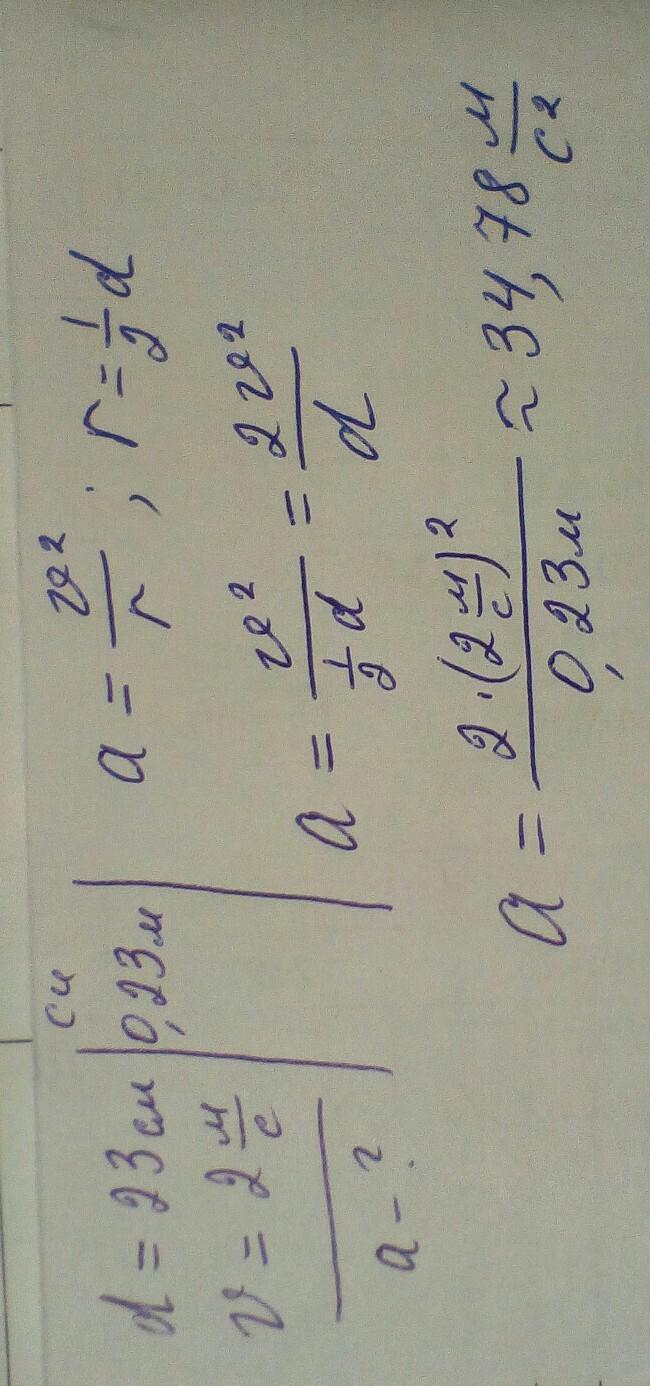 СИ
d = 23 см | 0,23 м
v = 2 м/с
a - ?
a = v²/r ; r = 1/2 d
a = v²/(1/2 d) = 2v²/d
a = 2·(2 м/с)²/0,23 м ≈ 34,78 м/с²